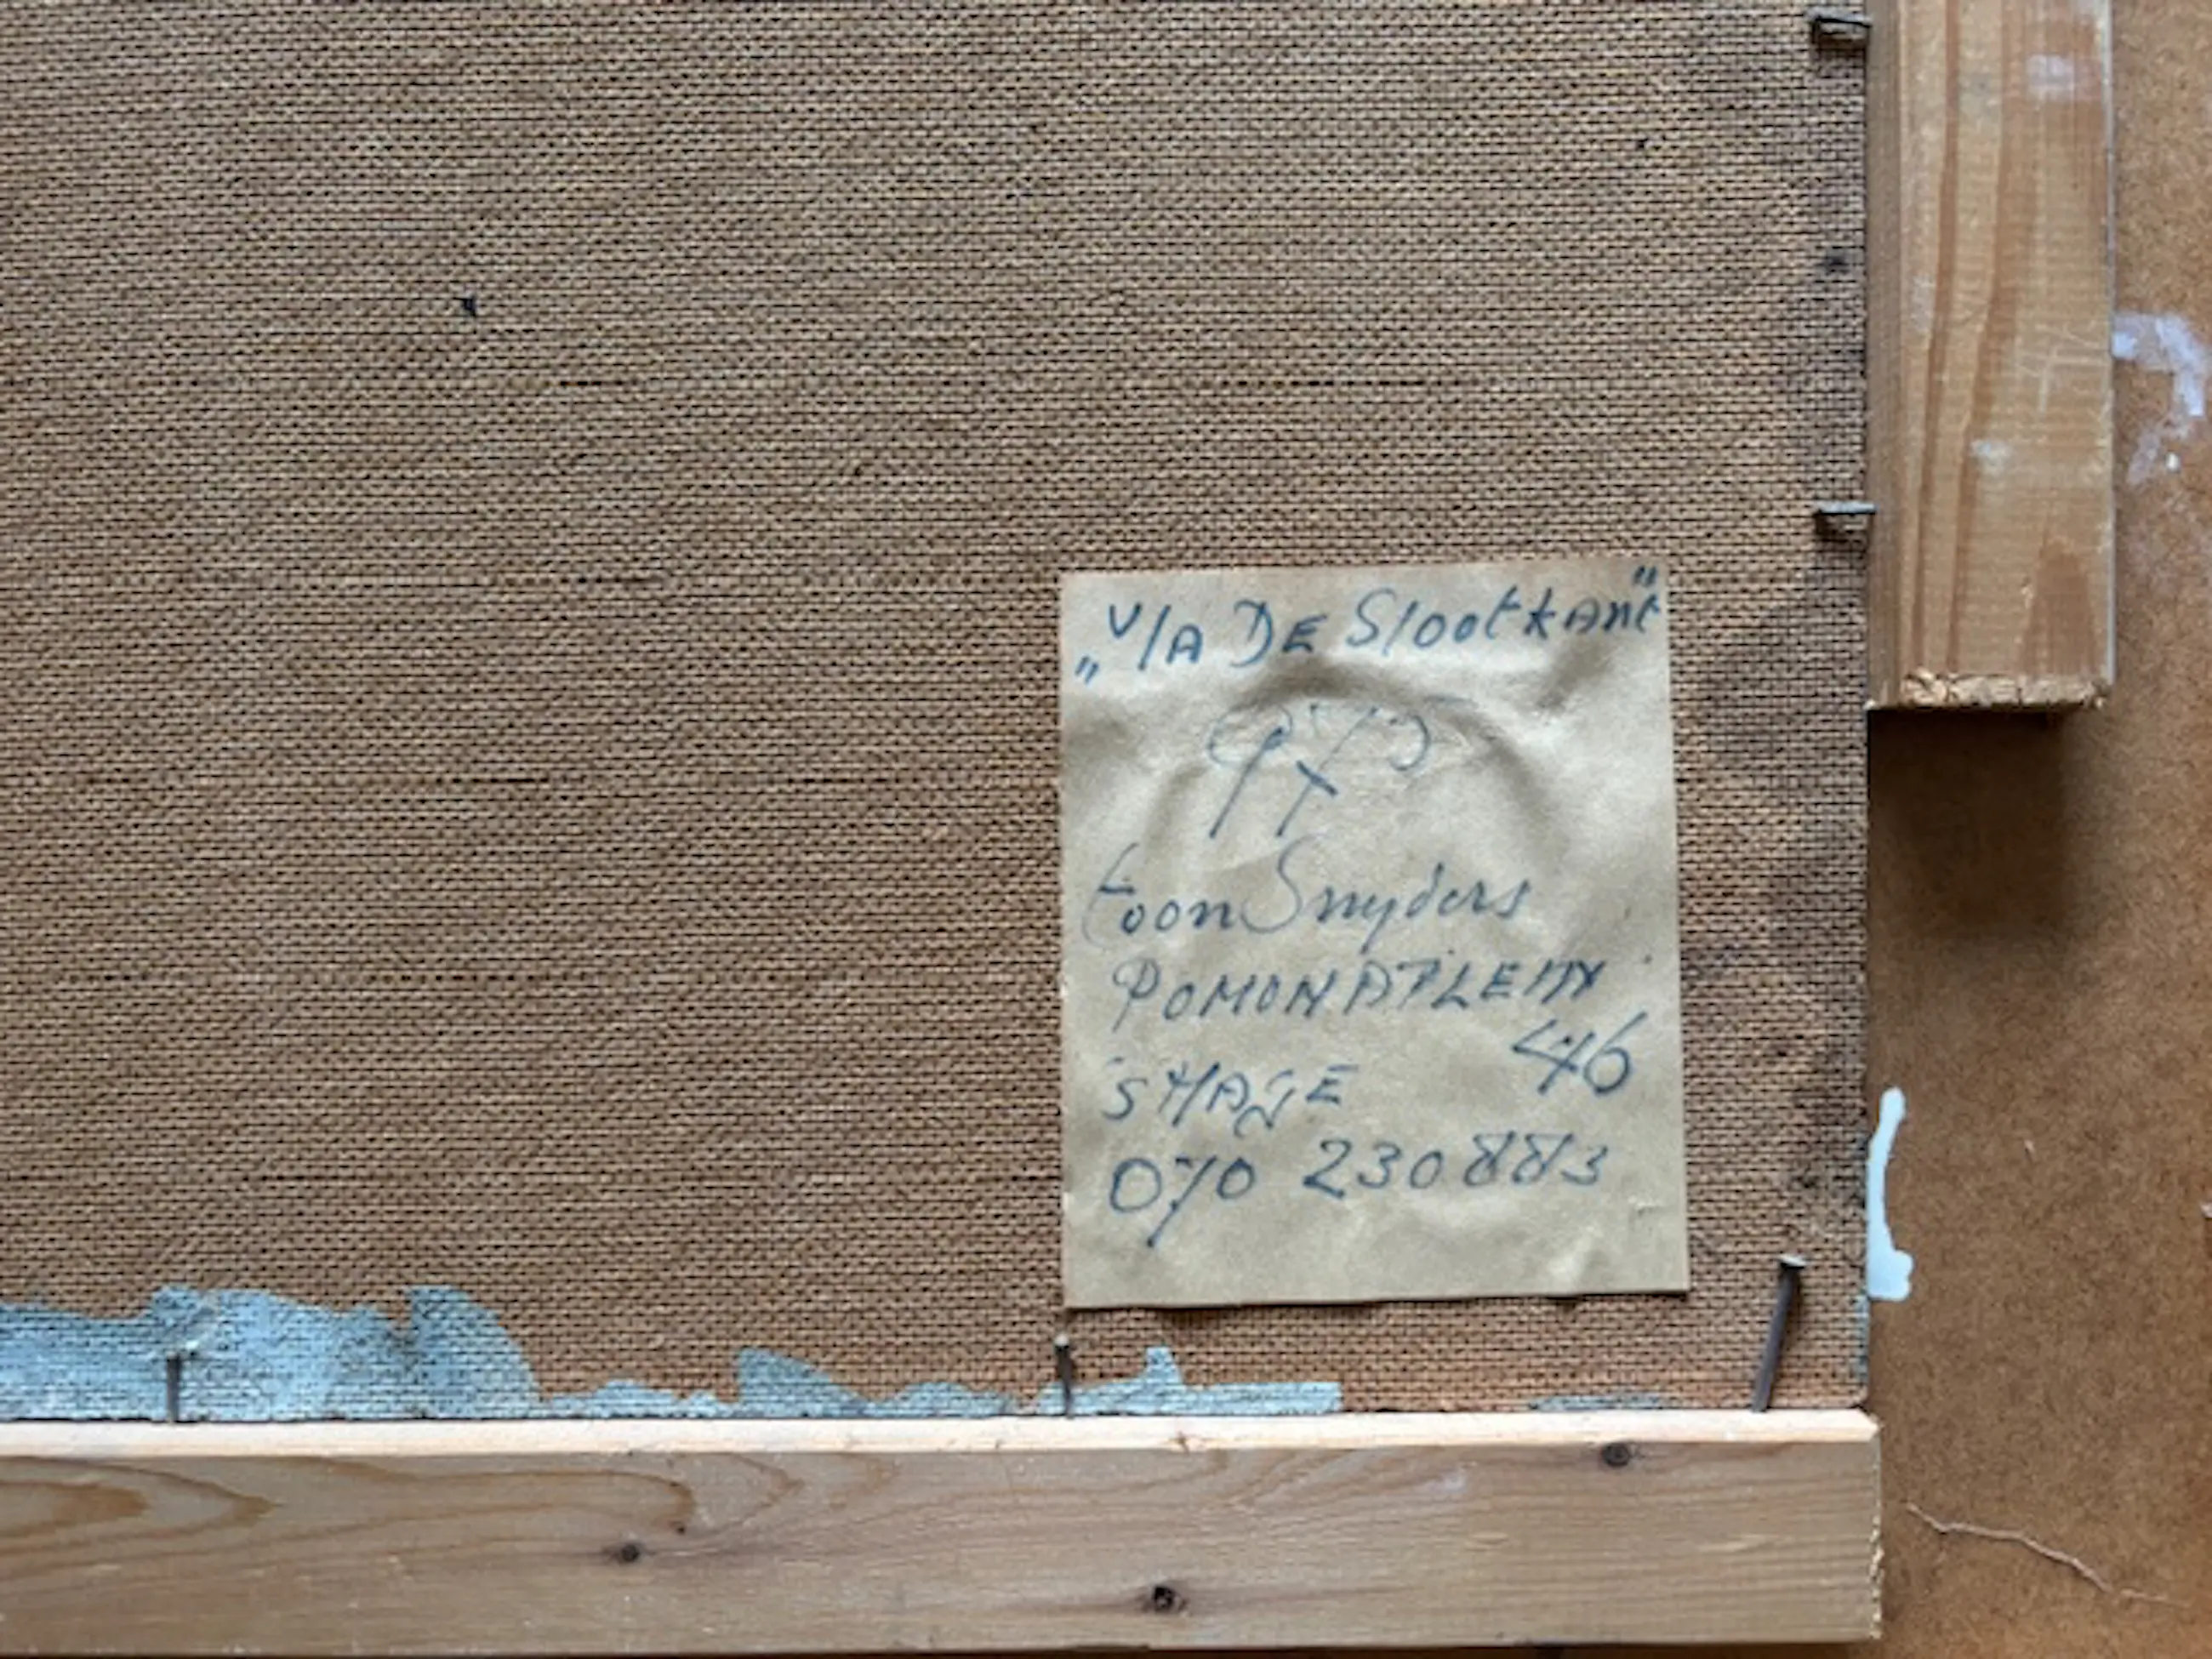 „V/A DE Slootkant"
Toon Snyders
POMONAPLEIN
46
'S HAGE
070 230883